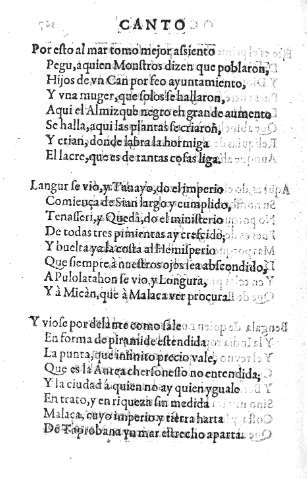 CANTO
Por esto al mar tomo mejor assiento
Pegu, a quien Monstros dizen que poblaron,
Hijos de vn Can por feo ayuntamiento,
Y vna muger, que solos se hallaron,
Aqui el Almizque negro en grande aumento
Se halla, aqui las plantas se criaron,
Y crian, donde labra la hormiga
El lacre, que es de tantas cosas liga.
Langur se vio, y Tanayo, do el imperio
Comiença de Sian largo y cumplido,
Tenasseri, y Quedâ, do el ministerio
De todas tres pimientas ay crescido;
Y buelta ya la costa al Hemisperio
Que siempre à nuestros ojos sea abscondido,
A Pulolatahon se vio, y Longura,
Y à Micàn, que à Malaca ver procura.
Y viose por delante como sale
En forma de piramide estendida
La punta, que infinito precio vale,
Que es la Aurea chersonesso no entendida;
Y la ciudad à quien no ay quien yguale
En trato, y en riqueza sin medida
Malaca, cuyo imperio y tierra harta
De Taprobana vn mar estrecho aparta.